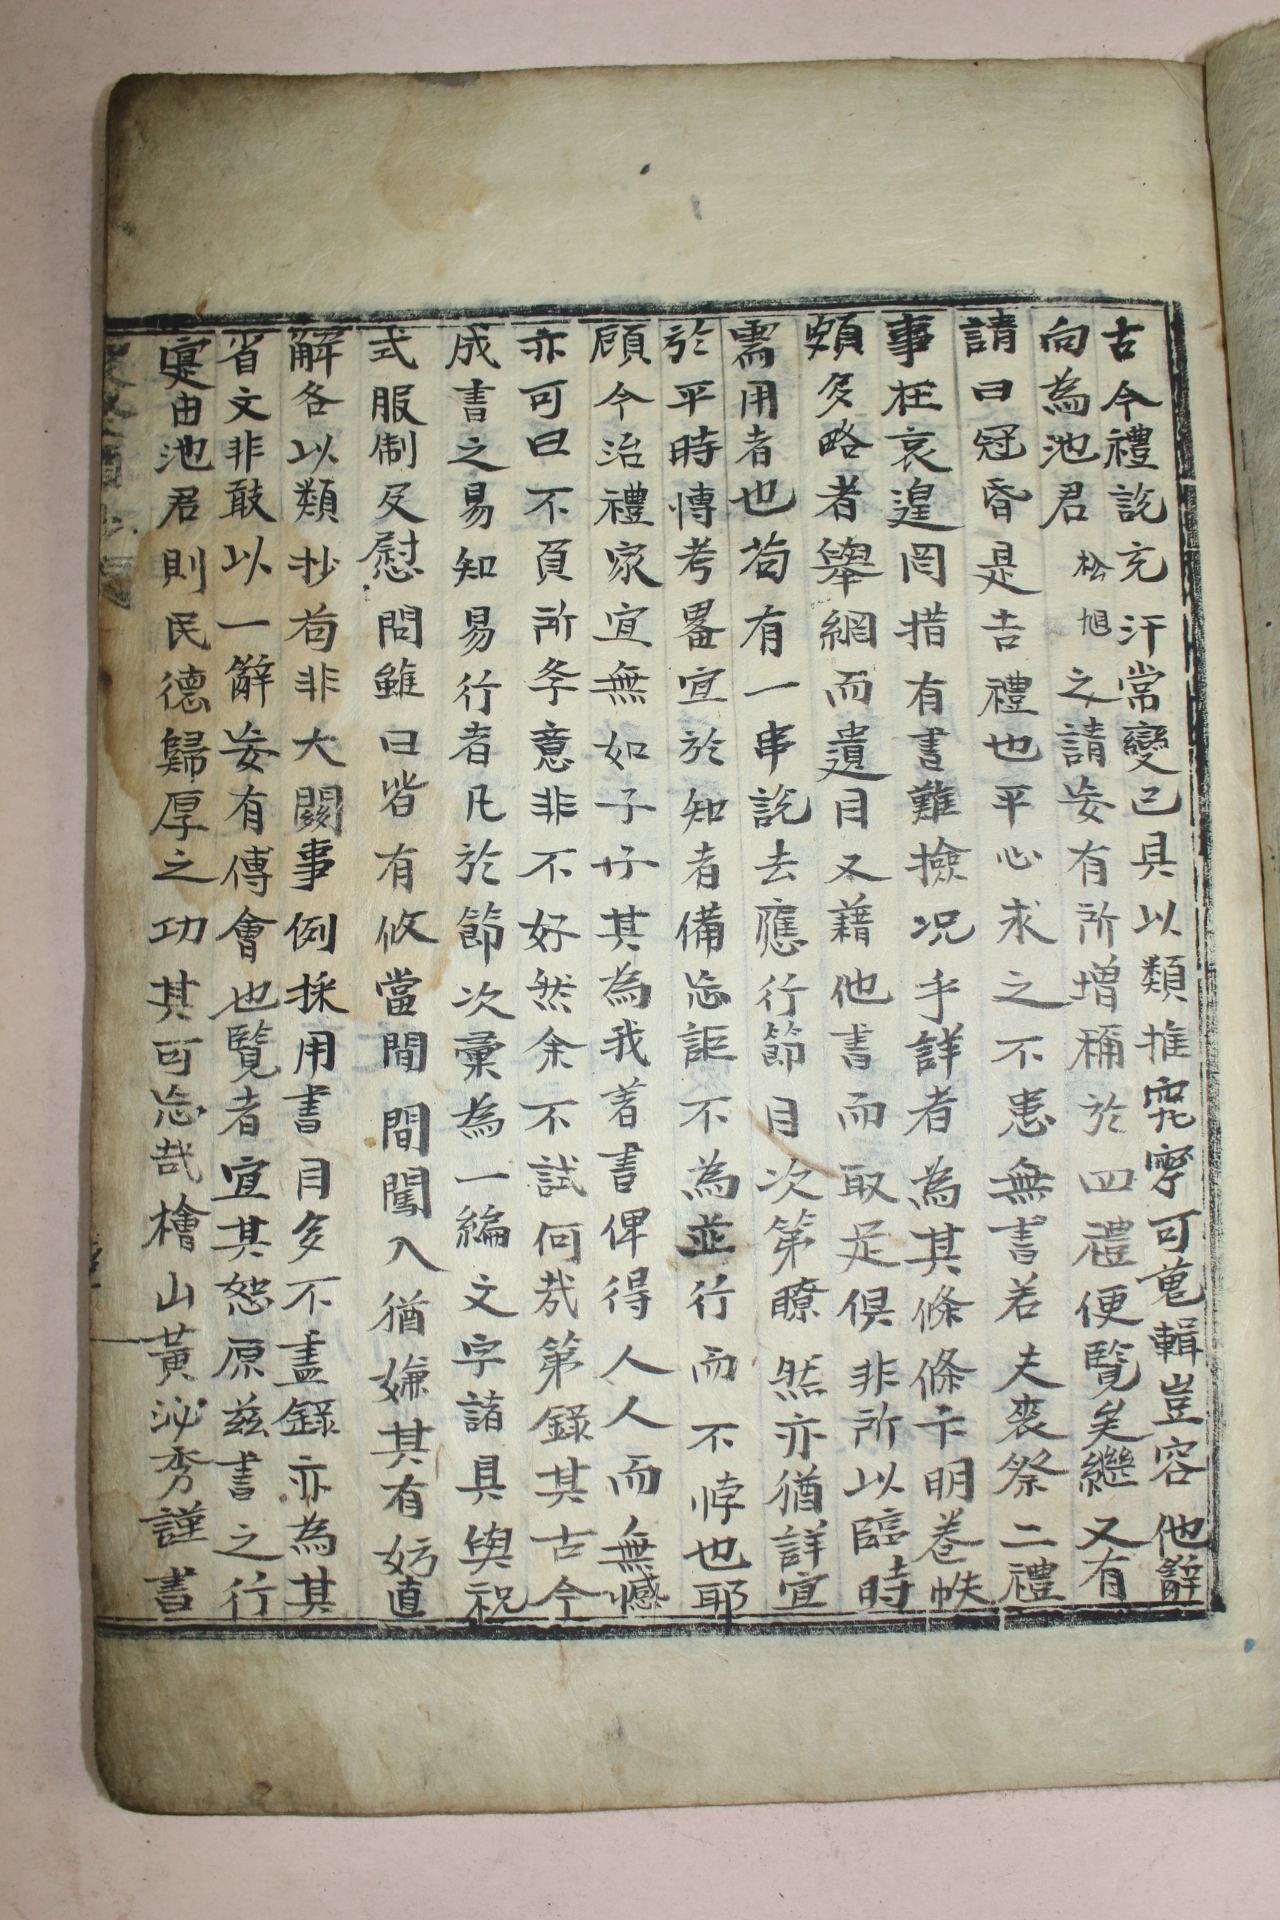 古今禮說充汗常變已具以類推究寧可蒐輯豈容他辭
向為池君松旭之請妄有所增稱於四禮便覽矣繼又有
請曰冠昏是吉禮也平心求之不患無書若夫喪祭二禮
事在哀遑罔措有書難撿况乎詳者為其條條卞明卷帙
頗多略者舉網而遺目又藉他書而取足俱非所以臨時
需用者也苟有一串說去應行節目次第瞭然亦猶詳宜
於平時慱考畧宜於知者備忘詎不為並行而不悖也耶
顧今治禮家宜無如子子其為我著書俾得人人而無憾
亦可曰不負所李意非不好然余不試何哉第錄其古今
成書之易知易行者凡於節次彙為一編文字諸具與祝
式服制及慰問雖曰皆有攸當間間闖入猶嫌其有妨直
解各以類抄苟非大闕事例採用書目多不盡錄亦為其
省文非敢以一辭妄有傅會也覽者宜其恕原茲書之行
寔由池君則民德歸厚之功其可忘哉檜山黃泌秀謹書